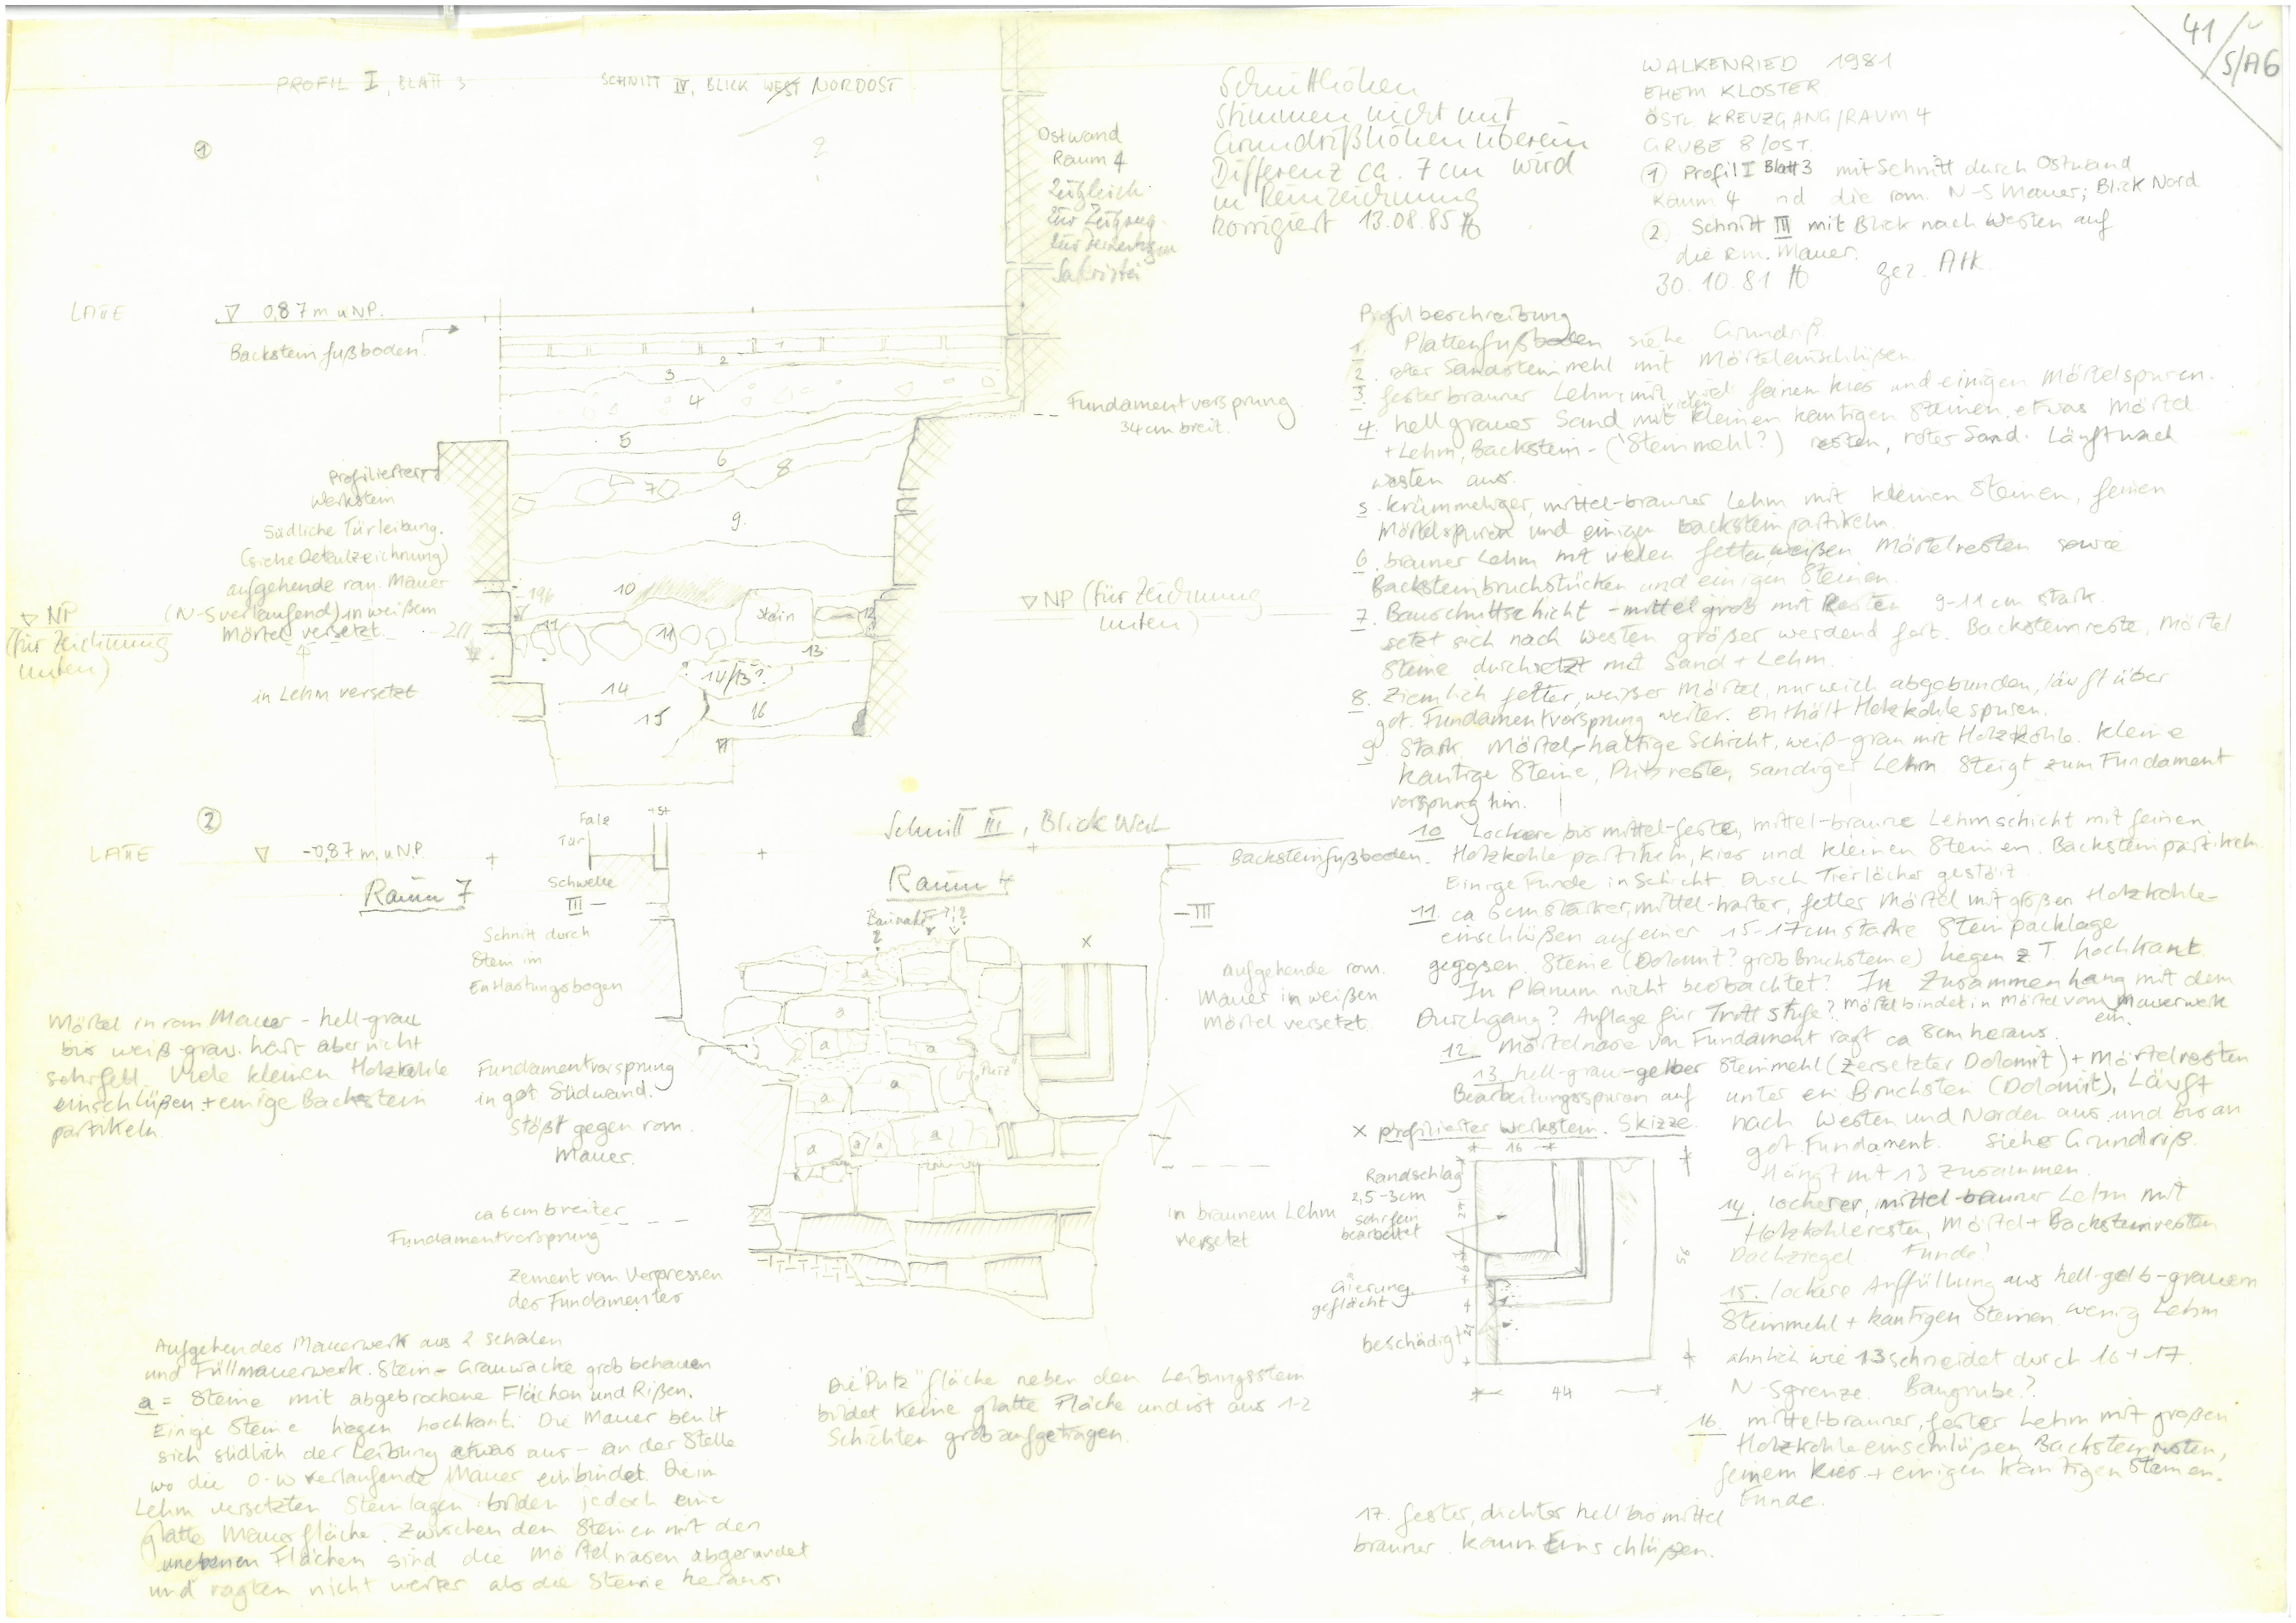 41/
S/A6
PROFIL I, BLATT 3
SCHNITT IV, BLICK WEST NORDOST
1
Ostwand
Raum 4
Zeitgleich
Sakristei
Schnitthöhen
stimmen nicht mit
Grundrißhöhen überein
Differenz ca. 7cm wird
in Reinzeichnung
korrigiert 13.08.85
WALKENRIED 1981
EHEM KLOSTER
ÖSTL KREUZGANG/RAUM 4
GRUBE 8/OST.
1 Profil I Blatt 3 mit Schnitt durch Ostwand
Raum 4 nd die rom. N-S Mauer; Blick Nord
2 Schnitt III mit Blick nach Westen auf
die rom. Mauer.
30.10.81 gez. Atk.
LATTE
0,87 m ü NP.
Backsteinfußboden
1
2
3
4
5
6
7
8
9.
10
11
11
Stein
12
13
14
14/13?
15
16
Fundamentvorsprung
34cm breit.
Profilierter
Werkstein
Südliche Türleibung.
(siehe Detailzeichnung)
aufgehende rom. Mauer
(N-S verlaufend) in weißem
Mörtel versetzt
in Lehm versetzt
NP
(für Zeichnung
unten)
NP (für Zeichnung
unten)
Profilbeschreibung
1. Plattenfußboden siehe Grundriß
2. roter Sandsteinmehl mit Mörteleinschlüßen
3. fester brauner Lehm mit viel feinem Kies und einigen Mörtelspuren.
4. hellgrauer Sand mit vielen kleinen kantigen Steinen, etwas Mörtel
+ Lehm, Backstein- (Steinmehl?) resten, roter Sand. Läuft nach
westen aus.
5. krümmeliger, mittel-brauner Lehm mit kleinen Steinen, feinen
Mörtelspuren und einigen backsteinpartikeln.
6. brauner Lehm mit vielen fetten, weißen Mörtelresten sowie
Backsteinbruchstücken und einigen Steinen.
7. Bauschuttschicht - mittelgrob mit Resten 9-11 cm stark.
setzt sich nach westen größer werdend fort. Backsteinreste, Mörtel
Steine durchsetzt mit Sand + Lehm.
8. Ziemlich fetter, weißer Mörtel, nur weich abgebunden, läuft über
got. Fundamentvorsprung weiter. Enthält Holzkohlespuren.
9. Stark Mörtel-haltige Schicht, weiß-grau mit Holzkohle. kleine
kantige Steine, Putzreste, sandiger Lehm. Steigt zum Fundament
vorsprung hin.
10 Lockere bis mittel-feste, mittel-braune Lehmschicht mit feinen
Holzkohlepartikeln, Kies und kleinen Steinen. Backsteinpartikeln.
Einige Funde in Schicht. Durch Tierlöcher gestört.
11. ca 6cm starker, mittel-harter, fetter Mörtel mit großen Holzkohle-
einschlüßen auf einer 15-17cm starke Steinpacklage
gegosen. Steine (Dolomit? grob Bruchsteine) liegen z T hochkant.
In Planum nicht beobachtet? In Zusammenhang mit dem
Durchgang? Auflage für Trittstufe? Mörtel bindet in Mörtel vom Mauerwerk
ein.
12. Mörtelnase von Fundament ragt ca 8cm heraus.
13 hell-grau-gelber Steinmehl (zersetzter Dolomit) + Mörtelresten
Bearbeitungsspuren auf unter ein Bruchstein (Dolomit). Läuft
nach Westen und Norden aus und bis an
got. Fundament. Siehe Grundriß.
Hängt mit 13 zusammen.
14. lockerer, mittel-brauner Lehm mit
Holzkohleresten, Mörtel + Backsteinresten
Dachziegel. Funde!
15. lockere Auffüllung aus hell-gelb-grauem
Steinmehl + kantigen Steinen wenig Lehm
ähnlich wie 13 schneidet durch 16 + 17.
N-S grenze. Baugrube?
16. mittelbrauner, fester Lehm mit großen
Holzkohleeinschlüßen, Backsteinresten,
feinem Kies + einigen kantigen Steinen.
Funde.
17. fester, dichter hell bis mittel
brauner kaum Einschlüßen.
2
LATTE
-0,87 m, ü NP.
Falz
Tür
Schwelle
III
Schnitt III, Blick West
Raum 7
Raum 4
Baunaht
Backsteinfußboden.
III
x
Schnitt durch
Stein im
Entlastungsbogen
Aufgehende rom.
Mauer in weißen
Mörtel versetzt.
Mörtel in rom Mauer - hell-grau
bis weiß grau. hart aber nicht
sehr fett. Viele kleinen Holzkohle
einschlüßen + einige Backstein
partikeln.
Fundamentvorsprung
in got Südwand.
Stößt gegen rom.
Mauer.
a
a
a
a
a
a
a
a
a
a
Putz
ca 6cm breiter
Fundamentvorsprung
Zement vom Verpressen
des Fundamentes
in braunem Lehm
versetzt
x profilierter Werkstein. Skizze.
16
Randschlag
2,5-3cm
sehr fein
bearbeitet
Gierung
geflächt
beschädigt
95
44
Aufgehendes Mauerwerk aus 2 Schalen
und Füllmauerwerk. Stein- Grauwacke grob behauen
a = Steine mit abgebrochene Flächen und Rißen.
Einige Steine liegen hochkant. Die Mauer beult
sich südlich der Leibung etwas aus - an der Stelle
wo die O-W verlaufende Mauer einbindet. Die in
Lehm versetzten Steinlagen bilden jedoch eine
glatte Mauerfläche. Zwischen den Steinen mit den
unebenen Flächen sind die Mörtelnasen abgerundet
und ragten nicht weiter als die Steine heraus.
Die "Putz" fläche neben den Leibungsstein
bildet keine glatte Fläche und ist aus 1-2
Schichten grob aufgetragen.